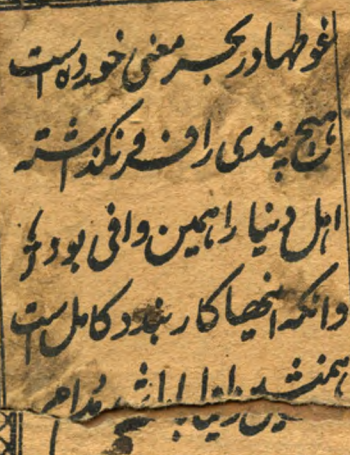 غوطها در بحر معنی خورده است
هیچ پندی را فرو نکذاشته
اهل دنیا را همین وافی بود
وانکه اینها کار بندد کامل است
همنشین اولیا باشد مدام